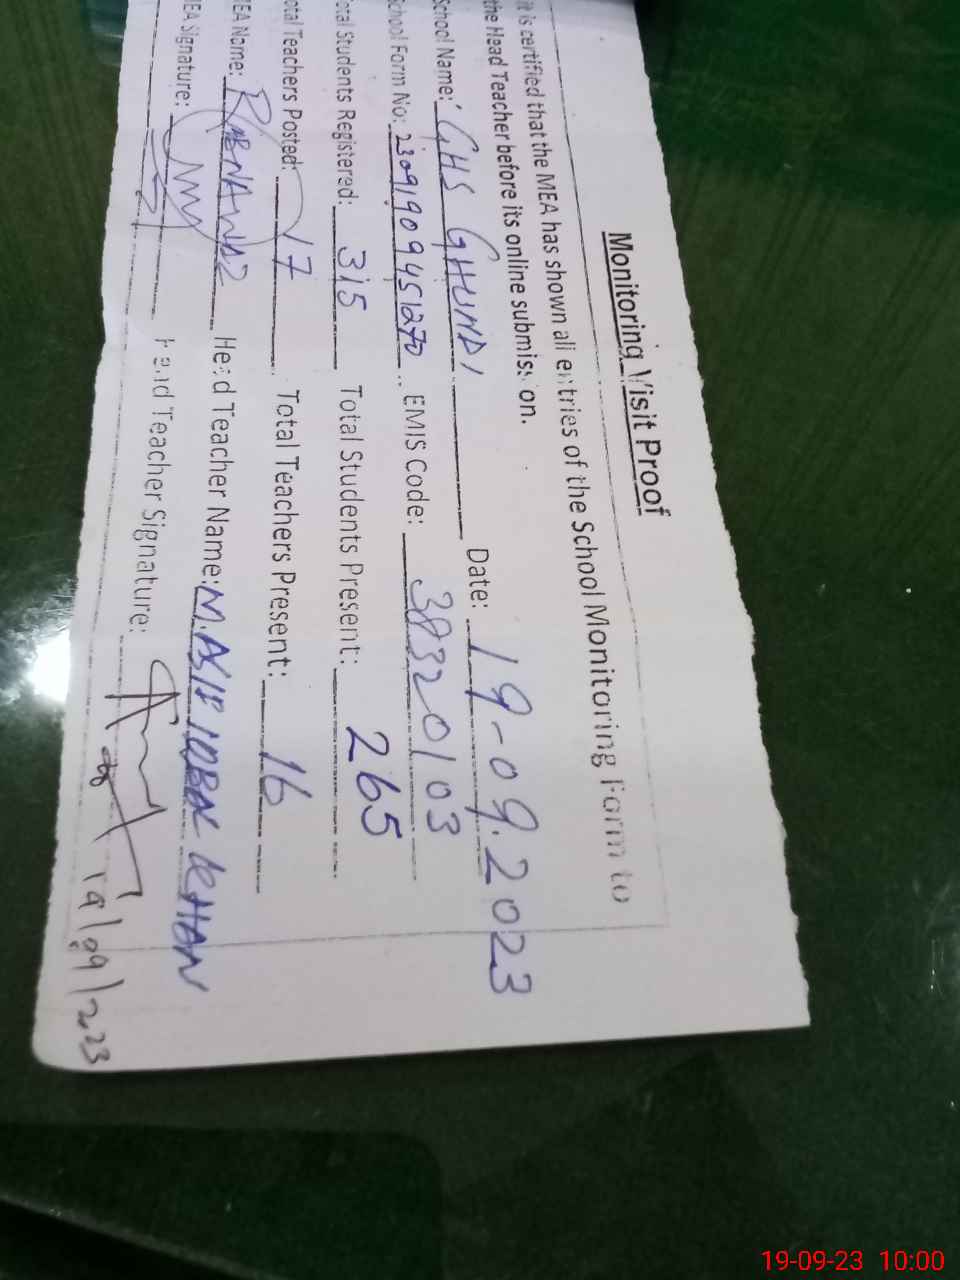 Monitoring Visit Proof
it is certified that the MEA has shown all entries of the School Monitoring Form to
the Head Teacher before its online submission.
School Name: GHS GHUNDI Date: 19-09.2023
School Form No: 23091909451270 EMIS Code: 38320103
Total Students Registered: 315 Total Students Present: 265
Total Teachers Posted: 17 Total Teachers Present: 16
MEA Name: RABNAWAZ Head Teacher Name: M. ASIF IQBAL KHAN
MEA Signature: Head Teacher Signature:
19/09/2023
19-09-23 10:00